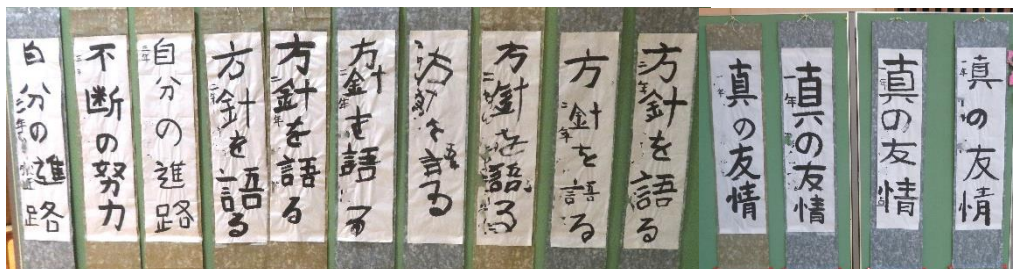 自分の進路
不断の努力
二年
自分の進路
二年
方針を語る
二年
方針を語る
二年
方針を語る
二年
方針を語る
方針を語る
二年
方針を語る
二年
方針を語る
二年
方針を語る
一年
真の友情
一年
真の友情
真の友情
真の友情